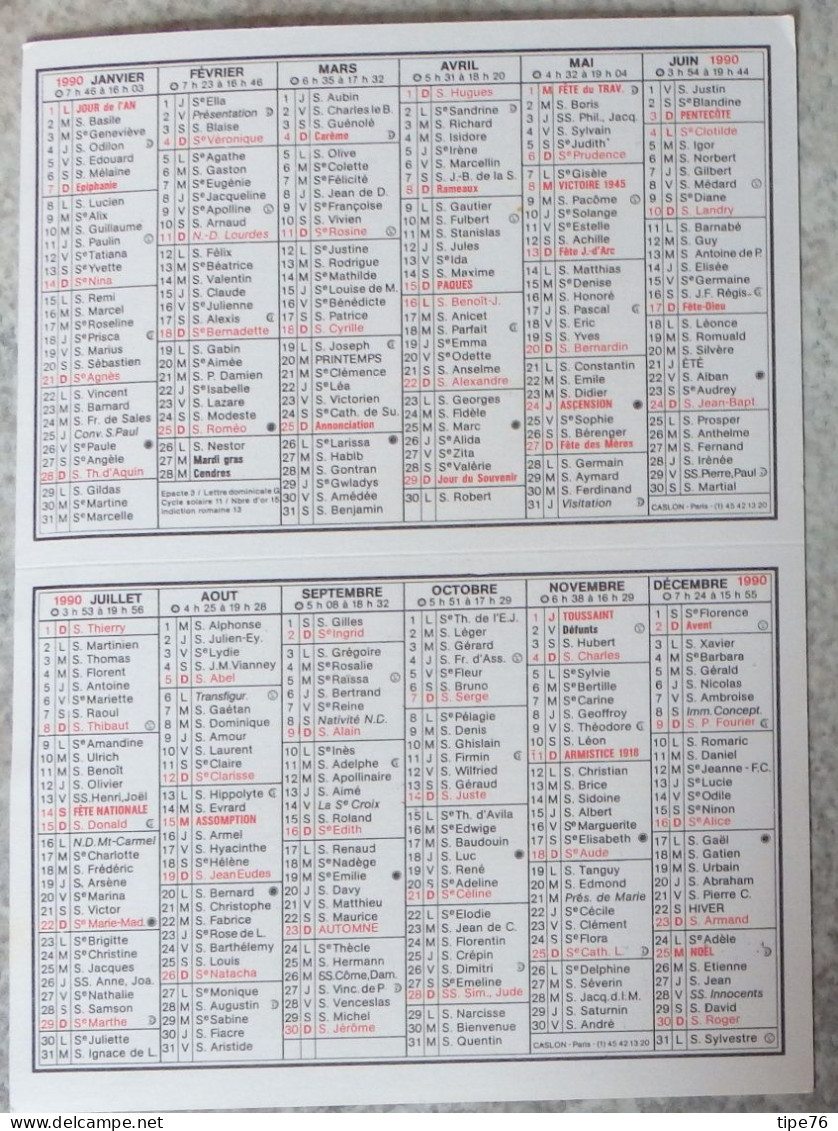 1990 JANVIER
7 h 46 à 16 h 03
1 L JOUR de l'AN
2 M S. Basile
3 M Se Geneviève
4 J S. Odilon
5 V S. Edouard
6 S S. Mélaine
7 D Epiphanie
8 L S. Lucien
9 M Se Alix
10 M S. Guillaume
11 J S. Paulin
12 V Se Tatiana
13 S Se Yvette
14 D Se Nina
15 L S. Remi
16 M S. Marcel
17 M Se Roseline
18 J Se Prisca
19 V S. Marius
20 S S. Sébastien
21 D Se Agnès
22 L S. Vincent
23 M S. Barnard
24 M S. Fr. de Sales
25 J Conv. S. Paul
26 V Se Paule
27 S Se Angèle
28 D S. Th. d'Aquin
29 L S. Gildas
30 M Se Martine
31 M Se Marcelle
FÉVRIER
7 h 23 à 16 h 46
1 J Se Ella
2 V Présentation
3 S S. Blaise
4 D Se Véronique
5 L Se Agathe
6 M S. Gaston
7 M Se Eugénie
8 J Se Jacqueline
9 V Se Apolline
10 S S. Arnaud
11 D N.-D. Lourdes
12 L S. Félix
13 M Se Béatrice
14 M S. Valentin
15 J S. Claude
16 V Se Julienne
17 S S. Alexis
18 D Se Bernadette
19 L S. Gabin
20 M Se Aimée
21 M S. P. Damien
22 J Se Isabelle
23 V S. Lazare
24 S S. Modeste
25 D S. Roméo
26 L S. Nestor
27 M Mardi gras
28 M Cendres
Epacte 3 / Lettre dominicale G
Cycle solaire 11 / Nbre d'or 15
Indiction romaine 13
MARS
6 h 35 à 17 h 32
1 J S. Aubin
2 V S. Charles le B.
3 S S. Guénolé
4 D Carême
5 L S. Olive
6 M Se Colette
7 M Se Félicité
8 J S. Jean de D.
9 V Se Françoise
10 S S. Vivien
11 D Se Rosine
12 L Se Justine
13 M S. Rodrigue
14 M Se Mathilde
15 J Se Louise de M.
16 V Se Bénédicte
17 S S. Patrice
18 D S. Cyrille
19 L S. Joseph
20 M PRINTEMPS
21 M Se Clémence
22 J Se Léa
23 V S. Victorien
24 S Se Cath. de Su.
25 D Annonciation
26 L Se Larissa
27 M S. Habib
28 M S. Gontran
29 J Se Gwladys
30 V S. Amédée
31 S S. Benjamin
AVRIL
5 h 31 à 18 h 20
1 D S. Hugues
2 L Se Sandrine
3 M S. Richard
4 M S. Isidore
5 J Se Irène
6 V S. Marcellin
7 S S. J.-B. de la S.
8 D Rameaux
9 L S. Gautier
10 M S. Fulbert
11 M S. Stanislas
12 J S. Jules
13 V Se Ida
14 S S. Maxime
15 D PAQUES
16 L S. Benoît-J.
17 M S. Anicet
18 M S. Parfait
19 J Se Emma
20 V Se Odette
21 S S. Anselme
22 D S. Alexandre
23 L S. Georges
24 M S. Fidèle
25 M S. Marc
26 J Se Alida
27 V Se Zita
28 S Se Valérie
29 D Jour du Souvenir
30 L S. Robert
MAI
4 h 32 à 19 h 04
1 M FÊTE du TRAV.
2 M S. Boris
3 J SS. Phil., Jacq.
4 V S. Sylvain
5 S Se Judith
6 D Se Prudence
7 L Se Gisèle
8 M VICTOIRE 1945
9 M S. Pacôme
10 J Se Solange
11 V Se Estelle
12 S S. Achille
13 D Fête J.-d'Arc
14 L S. Matthias
15 M Se Denise
16 M S. Honoré
17 J S. Pascal
18 V S. Eric
19 S S. Yves
20 D S. Bernardin
21 L S. Constantin
22 M S. Emile
23 M S. Didier
24 J ASCENSION
25 V Se Sophie
26 S S. Bérenger
27 D Fête des Mères
28 L S. Germain
29 M S. Aymard
30 M S. Ferdinand
31 J Visitation
JUIN 1990
3 h 54 à 19 h 44
1 V S. Justin
2 S Se Blandine
3 D PENTECÔTE
4 L Se Clotilde
5 M S. Igor
6 M S. Norbert
7 J S. Gilbert
8 V S. Médard
9 S Se Diane
10 D S. Landry
11 L S. Barnabé
12 M S. Guy
13 M S. Antoine de P.
14 J S. Elisée
15 V Se Germaine
16 S S. J.F. Régis
17 D Fête-Dieu
18 L S. Léonce
19 M S. Romuald
20 M S. Silvère
21 J ÉTÉ
22 V S. Alban
23 S Se Audrey
24 D S. Jean-Bapt.
25 L S. Prosper
26 M S. Anthelme
27 M S. Fernand
28 J S. Irénée
29 V SS. Pierre, Paul
30 S S. Martial
CASLON - Paris - (1) 45 42 13 20
1990 JUILLET
3 h 53 à 19 h 56
1 D S. Thierry
2 L S. Martinien
3 M S. Thomas
4 M S. Florent
5 J S. Antoine
6 V Se Mariette
7 S S. Raoul
8 D S. Thibaut
9 L Se Amandine
10 M S. Ulrich
11 M S. Benoît
12 J S. Olivier
13 V SS. Henri, Joël
14 S FÊTE NATIONALE
15 D S. Donald
16 L N.D. Mt-Carmel
17 M Se Charlotte
18 M S. Frédéric
19 J S. Arsène
20 V Se Marina
21 S S. Victor
22 D Se Marie-Mad.
23 L Se Brigitte
24 M Se Christine
25 M S. Jacques
26 J SS. Anne, Joa.
27 V Se Nathalie
28 S S. Samson
29 D Se Marthe
30 L Se Juliette
31 M S. Ignace de L.
AOUT
4 h 25 à 19 h 28
1 M S. Alphonse
2 J S. Julien-Ey.
3 V Se Lydie
4 S S. J.M. Vianney
5 D S. Abel
6 L Transfigur.
7 M S. Gaétan
8 M S. Dominique
9 J S. Amour
10 V S. Laurent
11 S Se Claire
12 D Se Clarisse
13 L S. Hippolyte
14 M S. Evrard
15 M ASSOMPTION
16 J S. Armel
17 V S. Hyacinthe
18 S Se Hélène
19 D S. Jean Eudes
20 L S. Bernard
21 M S. Christophe
22 M S. Fabrice
23 J Se Rose de L.
24 V S. Barthélemy
25 S S. Louis
26 D Se Natacha
27 L Se Monique
28 M S. Augustin
29 M Se Sabine
30 J S. Fiacre
31 V S. Aristide
SEPTEMBRE
5 h 08 à 18 h 32
1 S S. Gilles
2 D Se Ingrid
3 L S. Grégoire
4 M Se Rosalie
5 M Se Raïssa
6 J S. Bertrand
7 V Se Reine
8 S Nativité N.D.
9 D S. Alain
10 L Se Inès
11 M S. Adelphe
12 M S. Apollinaire
13 J S. Aimé
14 V La Se Croix
15 S S. Roland
16 D Se Edith
17 L S. Renaud
18 M Se Nadège
19 M Se Emilie
20 J S. Davy
21 V S. Matthieu
22 S S. Maurice
23 D AUTOMNE
24 L Se Thècle
25 M S. Hermann
26 M SS. Côme, Dam.
27 J S. Vinc. de P.
28 V S. Venceslas
29 S S. Michel
30 D S. Jérôme
OCTOBRE
5 h 51 à 17 h 29
1 L Se Th. de l'E.J.
2 M S. Léger
3 M S. Gérard
4 J S. Fr. d'Ass.
5 V Se Fleur
6 S S. Bruno
7 D S. Serge
8 L Se Pélagie
9 M S. Denis
10 M S. Ghislain
11 J S. Firmin
12 V S. Wilfried
13 S S. Géraud
14 D S. Juste
15 L Se Th. d'Avila
16 M Se Edwige
17 M S. Baudouin
18 J S. Luc
19 V S. René
20 S Se Adeline
21 D Se Céline
22 L Se Elodie
23 M S. Jean de C.
24 M S. Florentin
25 J S. Crépin
26 V S. Dimitri
27 S Se Emeline
28 D SS. Sim., Jude
29 L S. Narcisse
30 M S. Bienvenue
31 M S. Quentin
NOVEMBRE
6 h 38 à 16 h 29
1 J TOUSSAINT
2 V Défunts
3 S S. Hubert
4 D S. Charles
5 L Se Sylvie
6 M Se Bertille
7 M Se Carine
8 J S. Geoffroy
9 V S. Théodore
10 S S. Léon
11 D ARMISTICE 1918
12 L S. Christian
13 M S. Brice
14 M S. Sidoine
15 J S. Albert
16 V Se Marguerite
17 S Se Elisabeth
18 D Se Aude
19 L S. Tanguy
20 M S. Edmond
21 M Prés. de Marie
22 J Se Cécile
23 V S. Clément
24 S Se Flora
25 D Se Cath. L.
26 L Se Delphine
27 M S. Séverin
28 M S. Jacq. d.l.M.
29 J S. Saturnin
30 V S. André
CASLON - Paris - (1) 45 42 13 20
DÉCEMBRE 1990
7 h 24 à 15 h 55
1 S Se Florence
2 D Avent
3 L S. Xavier
4 M Se Barbara
5 M S. Gérald
6 J S. Nicolas
7 V S. Ambroise
8 S Imm. Concept.
9 D S. P. Fourier
10 L S. Romaric
11 M S. Daniel
12 M Se Jeanne-F.C.
13 J Se Lucie
14 V Se Odile
15 S Se Ninon
16 D Se Alice
17 L S. Gaël
18 M S. Gatien
19 M S. Urbain
20 J S. Abraham
21 V S. Pierre C.
22 S HIVER
23 D S. Armand
24 L Se Adèle
25 M NOËL
26 M S. Etienne
27 J S. Jean
28 V SS. Innocents
29 S S. David
30 D S. Roger
31 L S. Sylvestre
tipe76